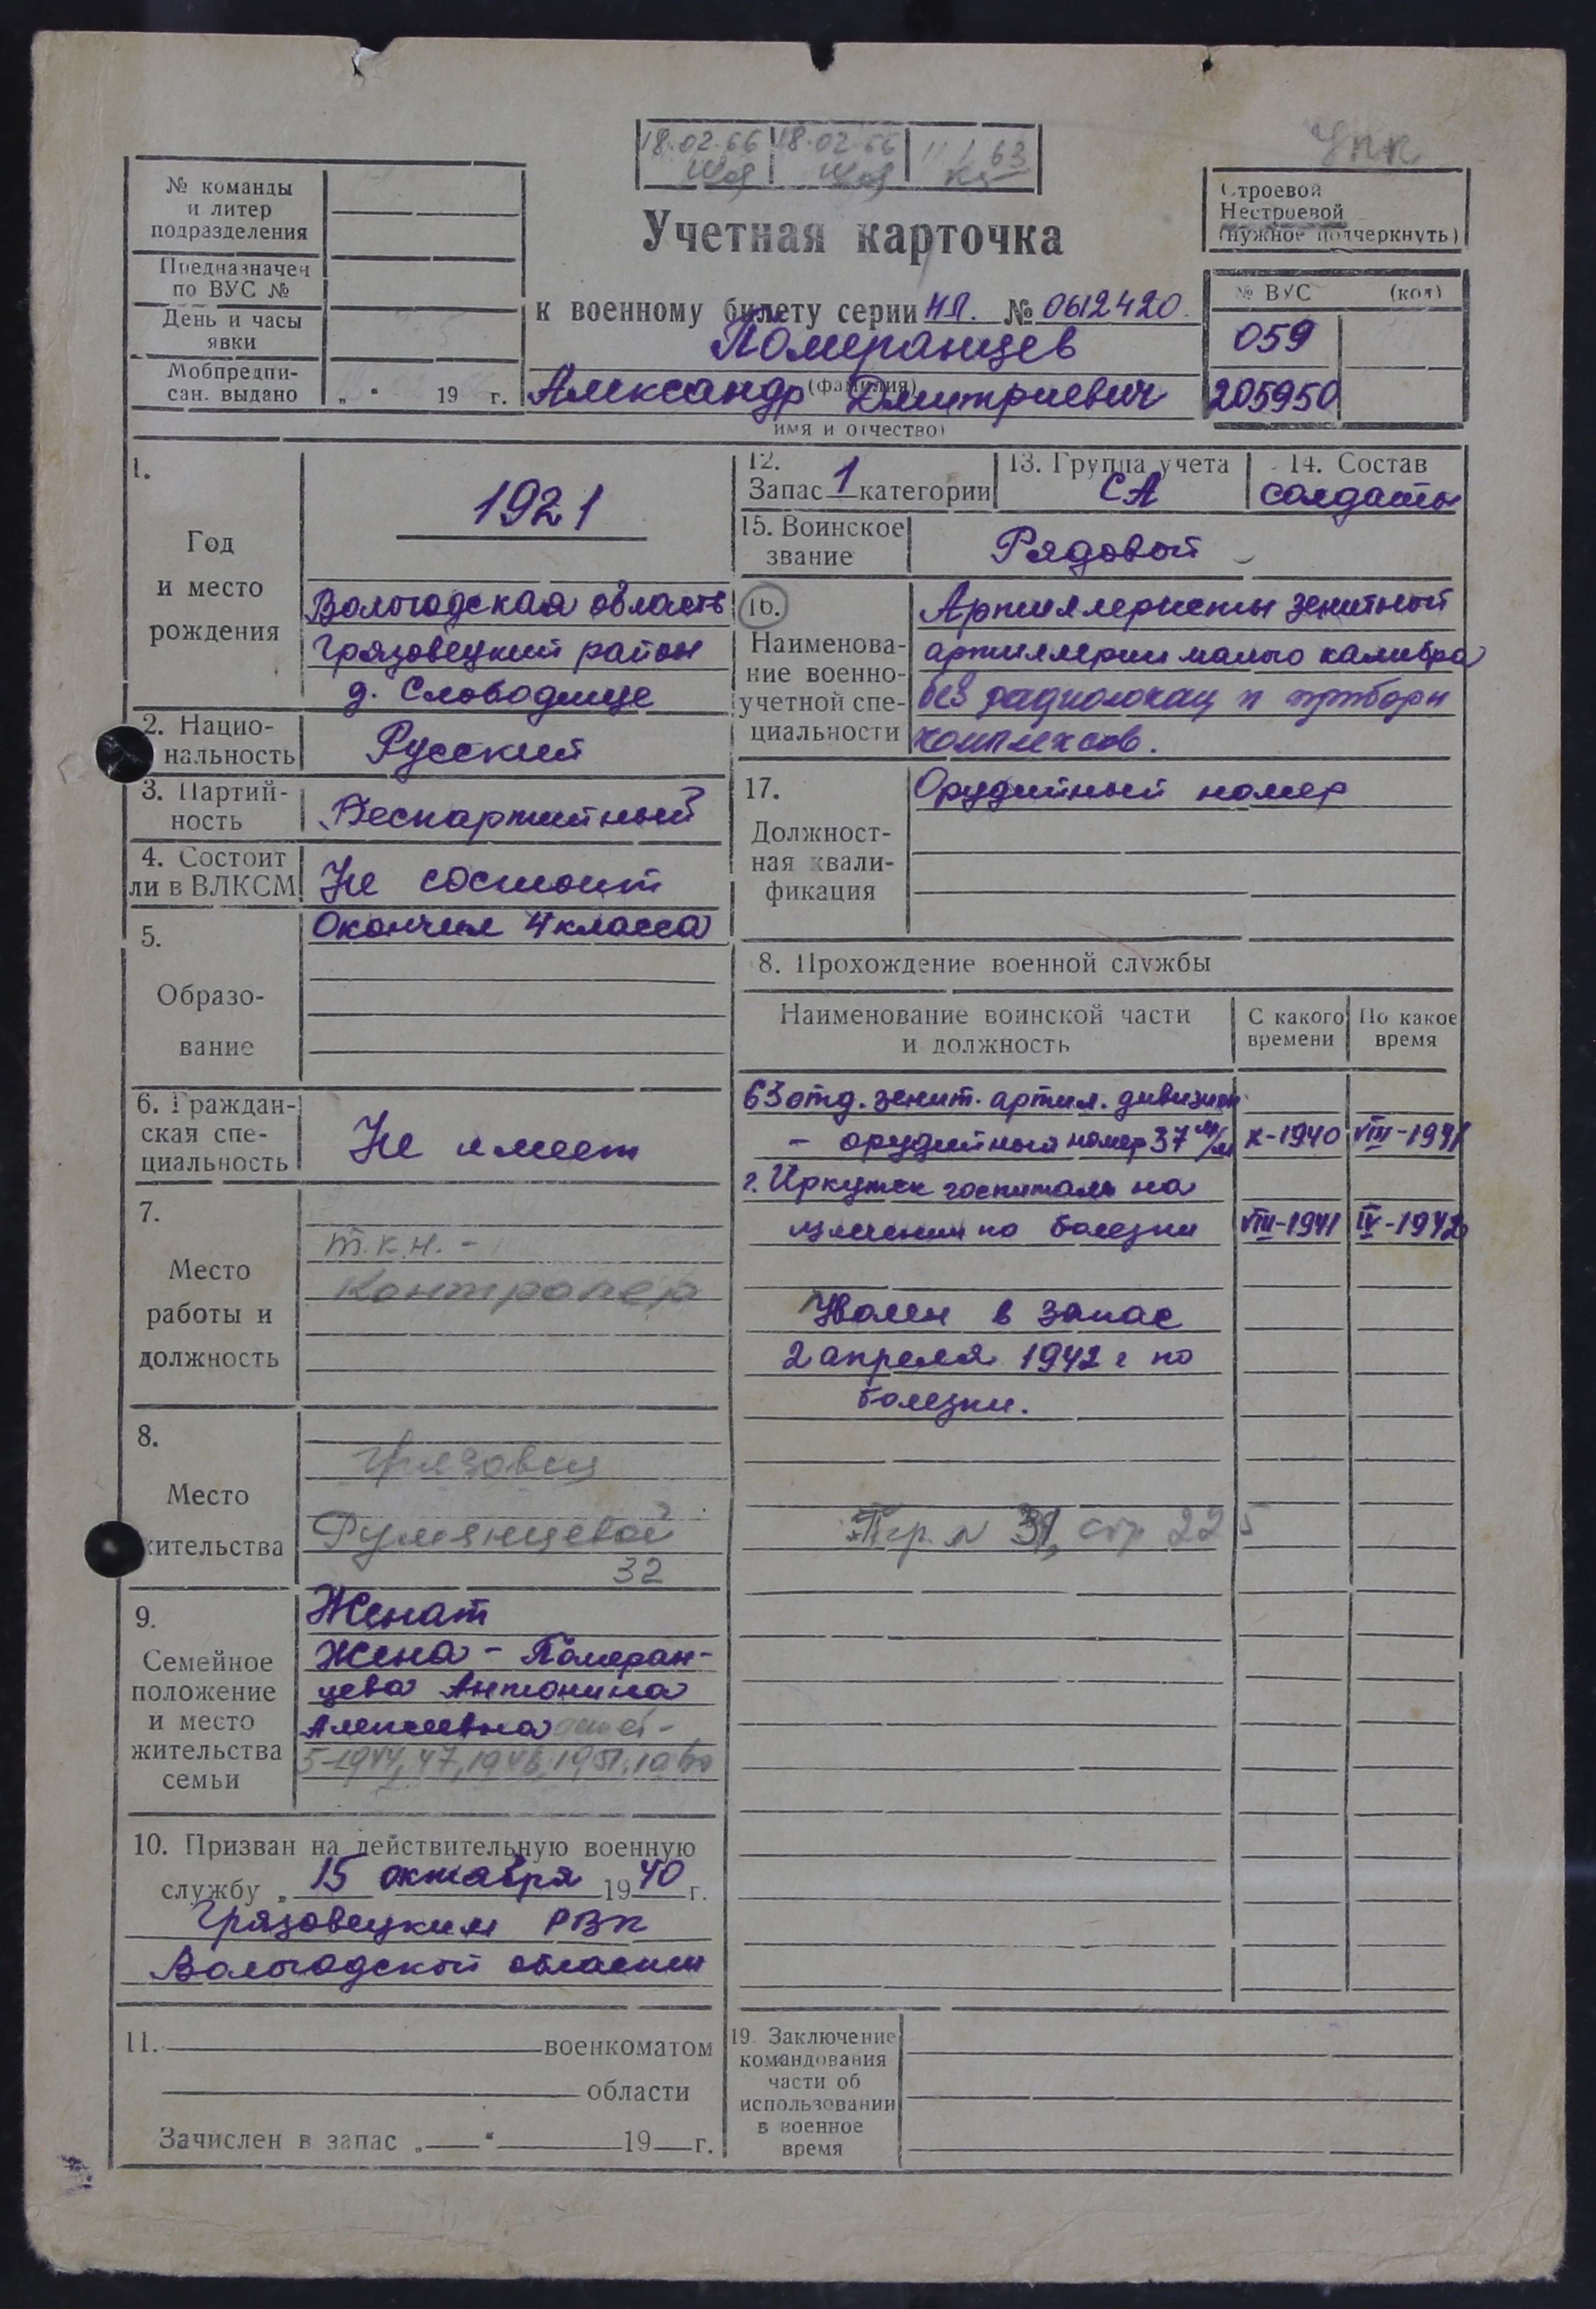 18.02.66 18.02.66 63
УПК
№ команды
и литер
подразделения
Предназначен
по ВУС №
День и часы
явки
Мобпредпи-
сан. выдано „ “ 19 г.
Учетная карточка
к военному билету серии НЛ. № 0612420.
Померанцев
(фамилия)
Александр Дмитриевич
имя и отчество)
Строевой
Нестроевой
(нужное подчеркнуть)
№ ВУС (код)
059
205950
1.
Год
и место
рождения
1921
Вологодская область
Грязовецкий район
д. Слободище
2. Нацио-
нальность
Русский
3. Партий-
ность
Беспартийный
4. Состоит
ли в ВЛКСМ
Не состоит
5.
Образо-
вание
Окончил 4 класса
6. Граждан-
ская спе-
циальность
Не имеет
7.
Место
работы и
должность
т.к.н. -
Контролер
8.
Место
жительства
Грязовец
Румянцевой
32
9.
Семейное
положение
и место
жительства
семьи
Женат
Жена - Померан-
цева Антонина
Алексеевна
10. Призван на действительную военную
службу „ 15 октября 1940 г.
Грязовецким РВК
Вологодской области
11. военкоматом
области
Зачислен в запас „ “ 19 г.
12.
Запас 1 категории
13. Группа учета
СА
14. Состав
солдаты
15. Воинское
звание
Рядовой
16.
Наименова-
ние военно-
учетной спе-
циальности
Артиллеристы зенитной
артиллерии малого калибра
без радиолокац и прибори
комплексов.
17.
Должност-
ная квали-
фикация
Орудийный номер
8. Прохождение военной службы
Наименование воинской части
и должность
С какого
времени
По какое
время
63 отд. зенит. артил. дивизион
- орудийный номер 37 м/м X-1940 VIII-1941
г. Иркутск госпиталь на
излечении по болезни VIII-1941 IV-1942
Уволен в запас
2 апреля 1942 г по
болезни.
Пр. N 31, стр 225
19. Заключение
командования
части об
использовании
в военное
время